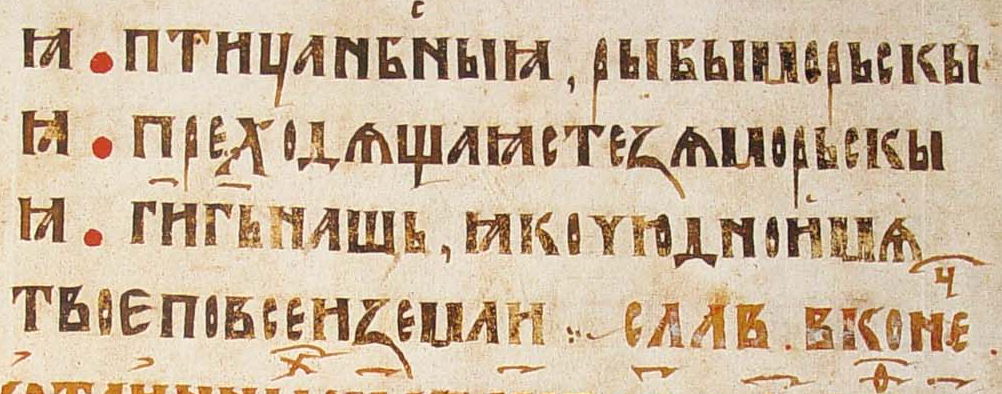 ꙗ · птица нбⷭ҇ныꙗ, рыбы морьскы
ꙗ · преходѧщаꙗ стеꙁѧ морьскы
ꙗ · г҃и г҃ь нашь, ꙗко чюдно имѧ
твое по всеи ꙁемли : слав . в коне ⷱ҇ .